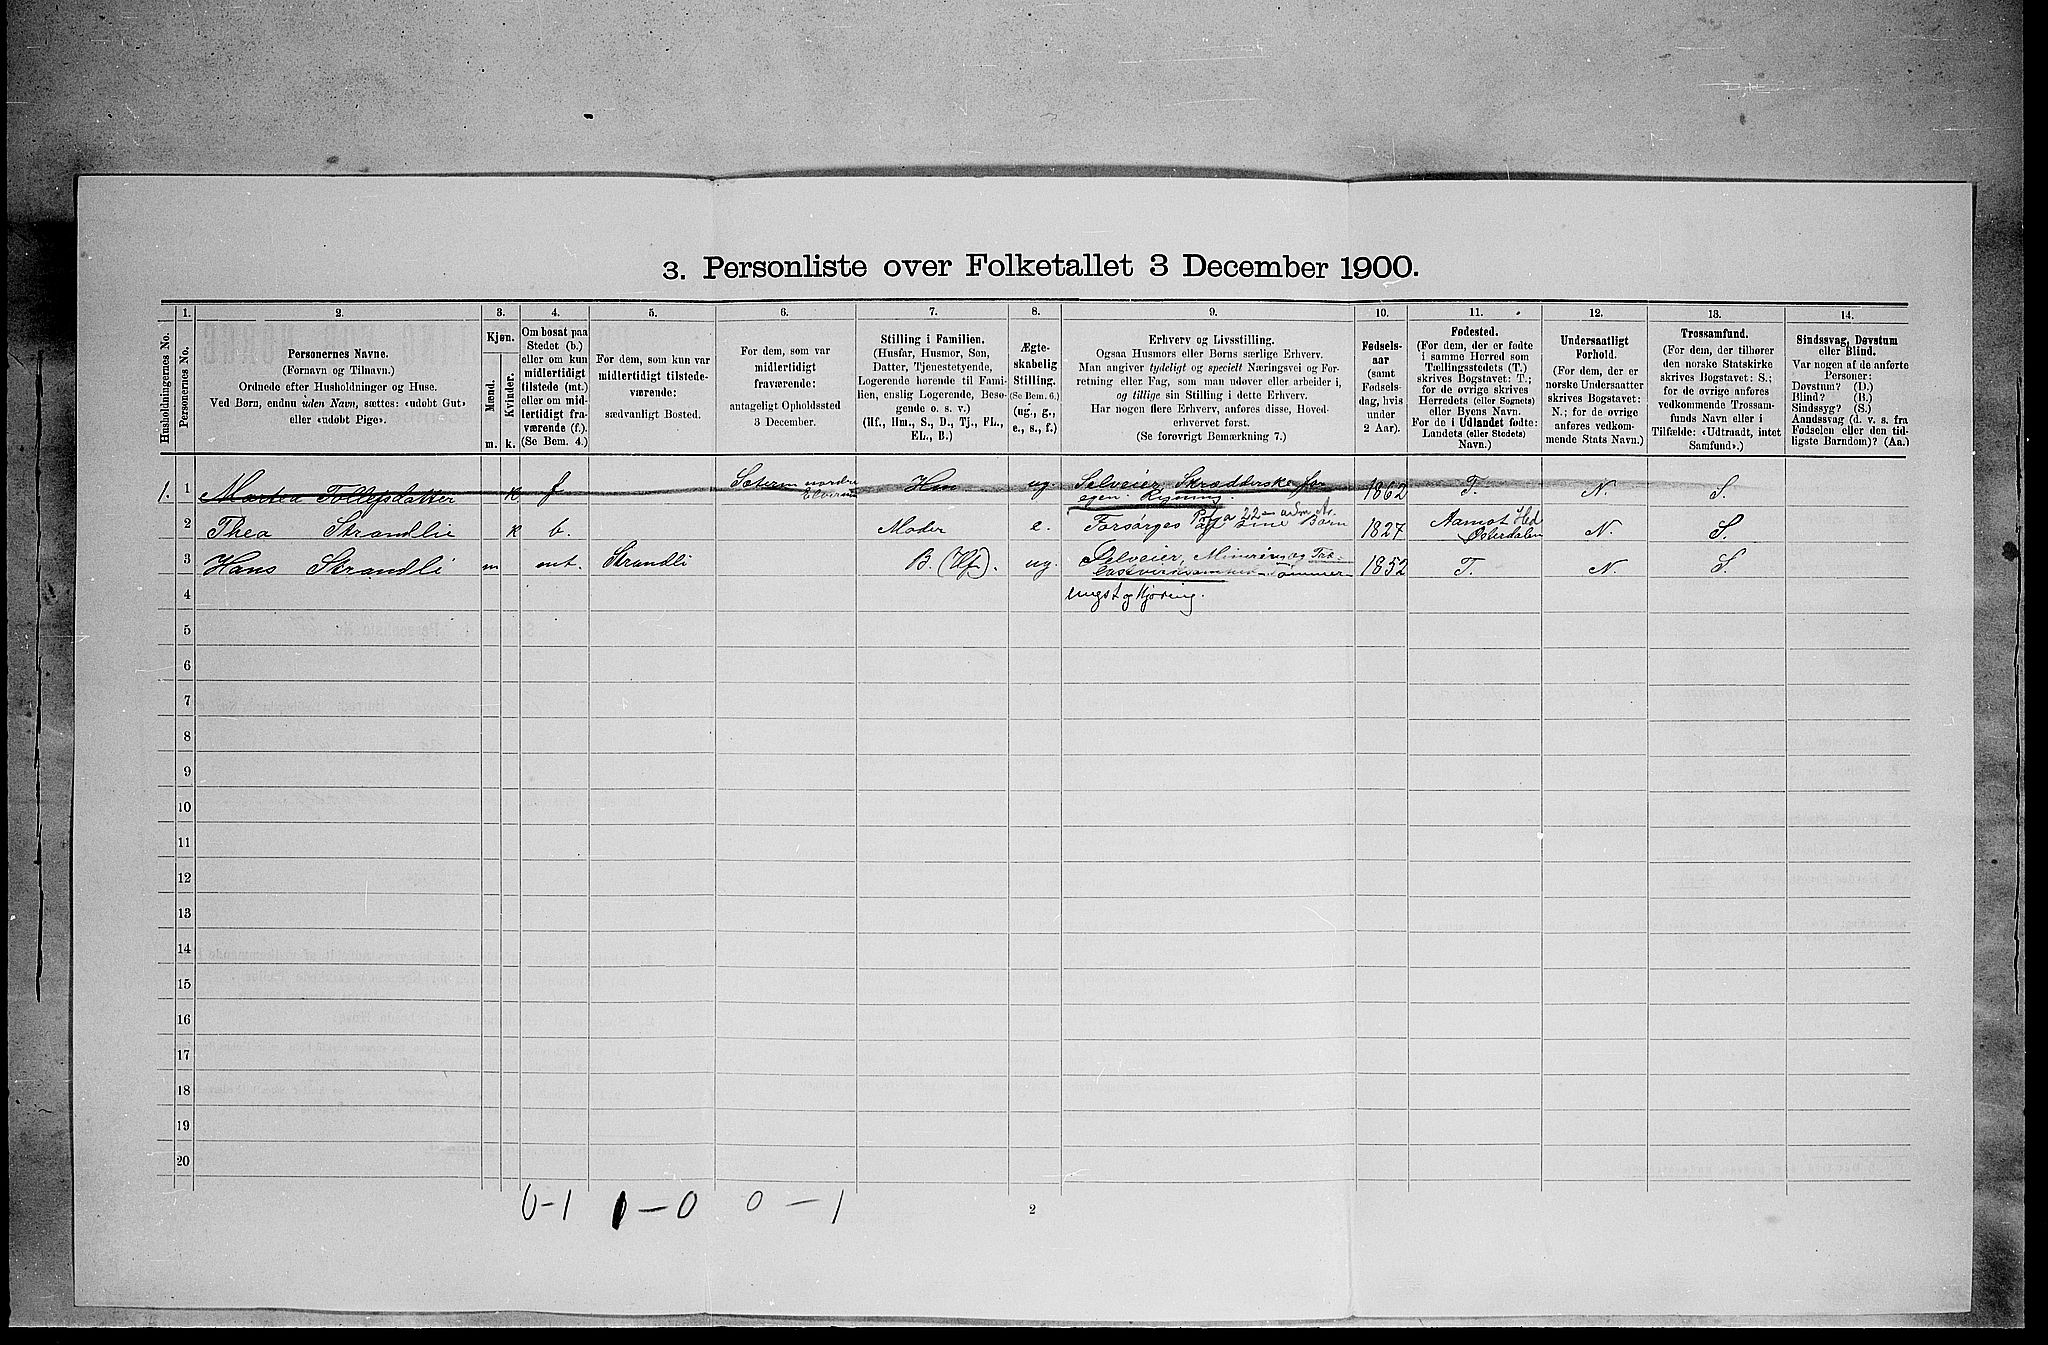 3. Personliste over Folketallet 3 December 1900.
Husholdningernes No.
1.
Personernes No.
2.
Personernes Navne.
(Fornavn og Tilnavn.)
Ordnede efter Husholdninger og Huse.
Ved Børn, endnu uden Navn, sættes: «udøbt Gut»
eller «udøbt Pige».
3.
Kjøn.
Mænd.
Kvinder.
m. k.
4.
Om bosat paa
Stedet (b.)
eller om kun
midlertidigt
tilstede (mt.)
eller om mid-
lertidigt fra-
værende (f.).
(Se Bem. 4.)
5.
For dem, som kun var
midlertidigt tilstede-
værende:
sædvanligt Bosted.
6.
For dem, som var
midlertidigt
fraværende:
antageligt Opholdssted
3 December.
7.
Stilling i Familien.
(Husfar, Husmor, Søn,
Datter, Tjenestetyende,
Logerende hørende til Fami-
lien, enslig Logerende, Besø-
gende o. s. v.)
(Hf., Hm., S., D., Tj., FL.,
EL., B.)
8.
Ægte-
skabelig
Stilling.
(Se Bem. 6.)
(ug., g.,
e., s., f.)
9.
Erhverv og Livsstilling.
Ogsaa Husmors eller Børns særlige Erhverv.
Man angiver tydeligt og specielt Næringsvei og For-
retning eller Fag, som man udøver eller arbeider i,
og tillige sin Stilling i dette Erhverv.
Har nogen flere Erhverv, anføres disse, Hoved-
erhvervet først.
(Se forøvrigt Bemærkning 7.)
10.
Fødsels-
aar
(samt
Fødsels-
dag, hvis
under
2 Aar).
11.
Fødested.
(For dem, der er fødte
i samme Herred som
Tællingsstedets (T.)
skrives Bogstavet: T.;
for de øvrige skrives
Herredets (eller Sognets)
eller Byens Navn.
For de i Udlandet fødte:
Landets (eller Stedets)
Navn.)
12.
Undersaatligt
Forhold.
(For dem, der er
norske Undersaatter
skrives Bogstavet:
N.; for de øvrige
anføres vedkom-
mende Stats Navn.)
13.
Trossamfund.
(For dem, der tilhører
den norske Statskirke
skrives Bogstavet: S.;
for de øvrige anføres
vedkommende Trossam-
funds Navn eller i
Tilfælde: «Udtraadt, intet
Samfund».)
14.
Sindssvag, Døvstum
eller Blind.
Var nogen af de anførte
Personer:
Døvstum? (D.)
Blind? (B.)
Sindssyg? (S.)
Aandssvag (d. v. s. fra
Fødselen eller den tid-
ligste Barndom)? (Aa.)
1. 1 Martea Tollefsdatter k f Sæteren nordre Elverum Hm ug. Selveier, Skrædderske for 1862 T. N. S.
egen Regning.
2 Thea Strandlie k b. Moder e. Forsørges af sine Børn 1827 Aamot Hed Østerdalen N. S.
3 Hans Strandli m mt. Strandli B. (Hf). ug. Selveier, 1852 T. N. S.
4 og Kjøring.
5
6
7
8
9
10
11
12
13
14
15
16
17
18
19
20
0-1 1-0 0-1
2